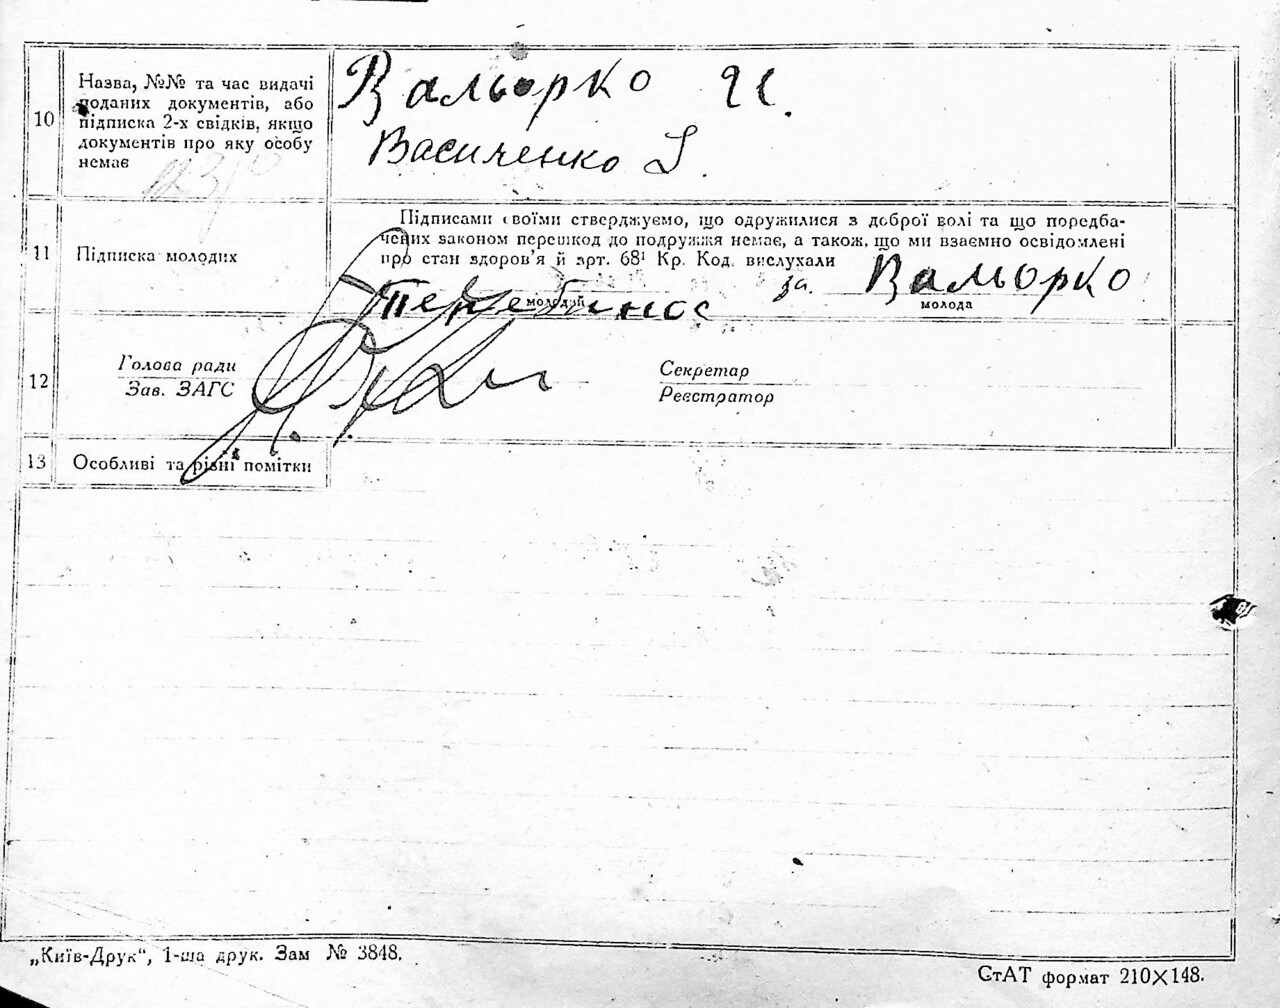 10
Назва, №№ та час видачі
поданих документів, або
підписка 2-х свідків, якщо
документів про яку особу
немає
Вальорко И.
Василенко І.
11
Підписка молодих
Підписами своїми стверджуємо, що одружилися з доброї волі та що передба-
чених законом перешкод до подружжя немає, а також, що ми взаємно освідомлені
про стан здоров'я й арт. 68¹ Кр. Код. вислухали
Теребинос за. Вальорко
молодий молода
12
Голова ради
Зав. ЗАГС
Секретар
Реєстратор
13
Особливі та різні помітки
„Київ-Друк“, 1-ша друк. Зам № 3848.
СтАТ формат 210×148.